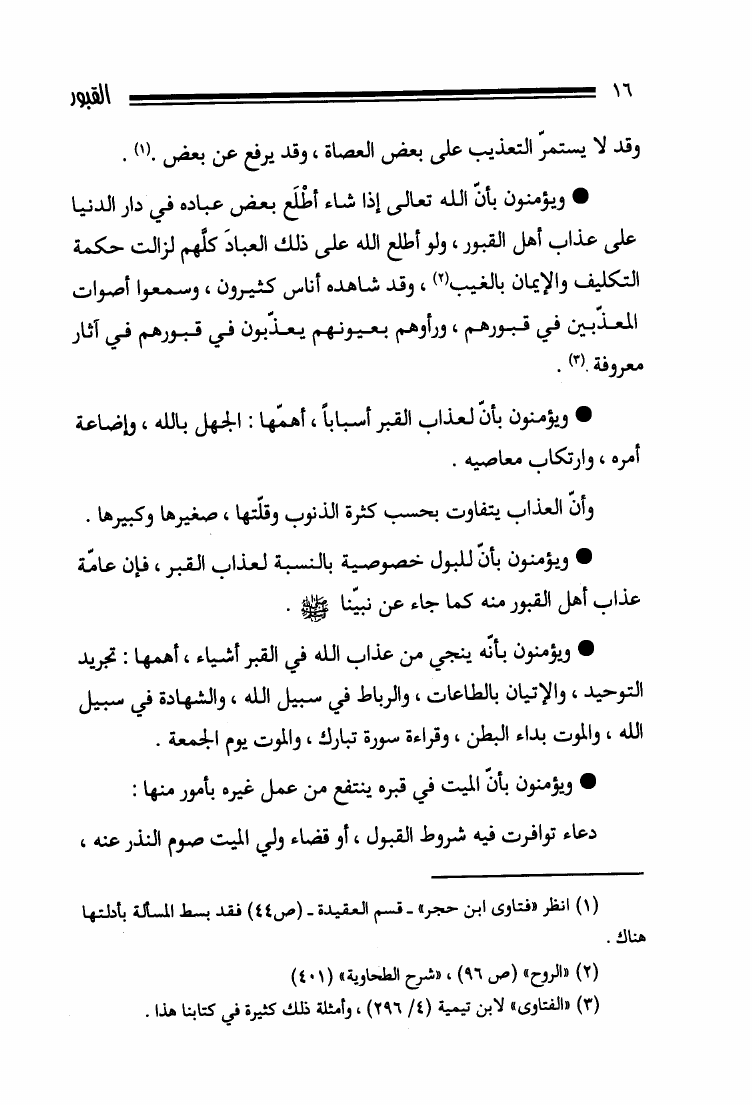 ١٦ القبور
وقد لا يستمرّ التعذيب على بعض العصاة ، وقد يرفع عن بعض .(١) .
● ويؤمنون بأنّ الله تعالى إذا شاء أطْلَع بعض عباده في دار الدنيا
على عذاب أهل القبور ، ولو أطلع الله على ذلك العبادَ كلَّهم لزالت حكمة
التكليف والإيمان بالغيب(٢) ، وقد شاهده أناس كثيرون ، وسمعوا أصوات
المعذّبين في قبورهم ، ورأوهم بعيونهم يعذّبون في قبورهم في آثار
معروفة .(٣) .
● ويؤمنون بأنّ لعذاب القبر أسباباً ، أهمّها : الجهل بالله ، وإضاعة
أمره ، وارتكاب معاصيه .
وأنّ العذاب يتفاوت بحسب كثرة الذنوب وقلّتها ، صغيرها وكبيرها .
● ويؤمنون بأنّ للبول خصوصية بالنسبة لعذاب القبر ، فإن عامّة
عذاب أهل القبور منه كما جاء عن نبيّنا ﷺ .
● ويؤمنون بأنّه ينجي من عذاب الله في القبر أشياء ، أهمها : تجريد
التوحيد ، والإتيان بالطاعات ، والرباط في سبيل الله ، والشهادة في سبيل
الله ، والموت بداء البطن ، وقراءة سورة تبارك ، والموت يوم الجمعة .
● ويؤمنون بأنّ الميت في قبره ينتفع من عمل غيره بأمور منها :
دعاء توافرت فيه شروط القبول ، أو قضاء ولي الميت صوم النذر عنه ،
(١) انظر «فتاوى ابن حجر» ـ قسم العقيدة ـ (ص٤٤) فقد بسط المسألة بأدلتها
هناك .
(٢) «الروح» (ص ٩٦) ، «شرح الطحاوية» (٤٠١)
(٣) «الفتاوى» لابن تيمية (٤/ ٢٩٦) ، وأمثلة ذلك كثيرة في كتابنا هذا .